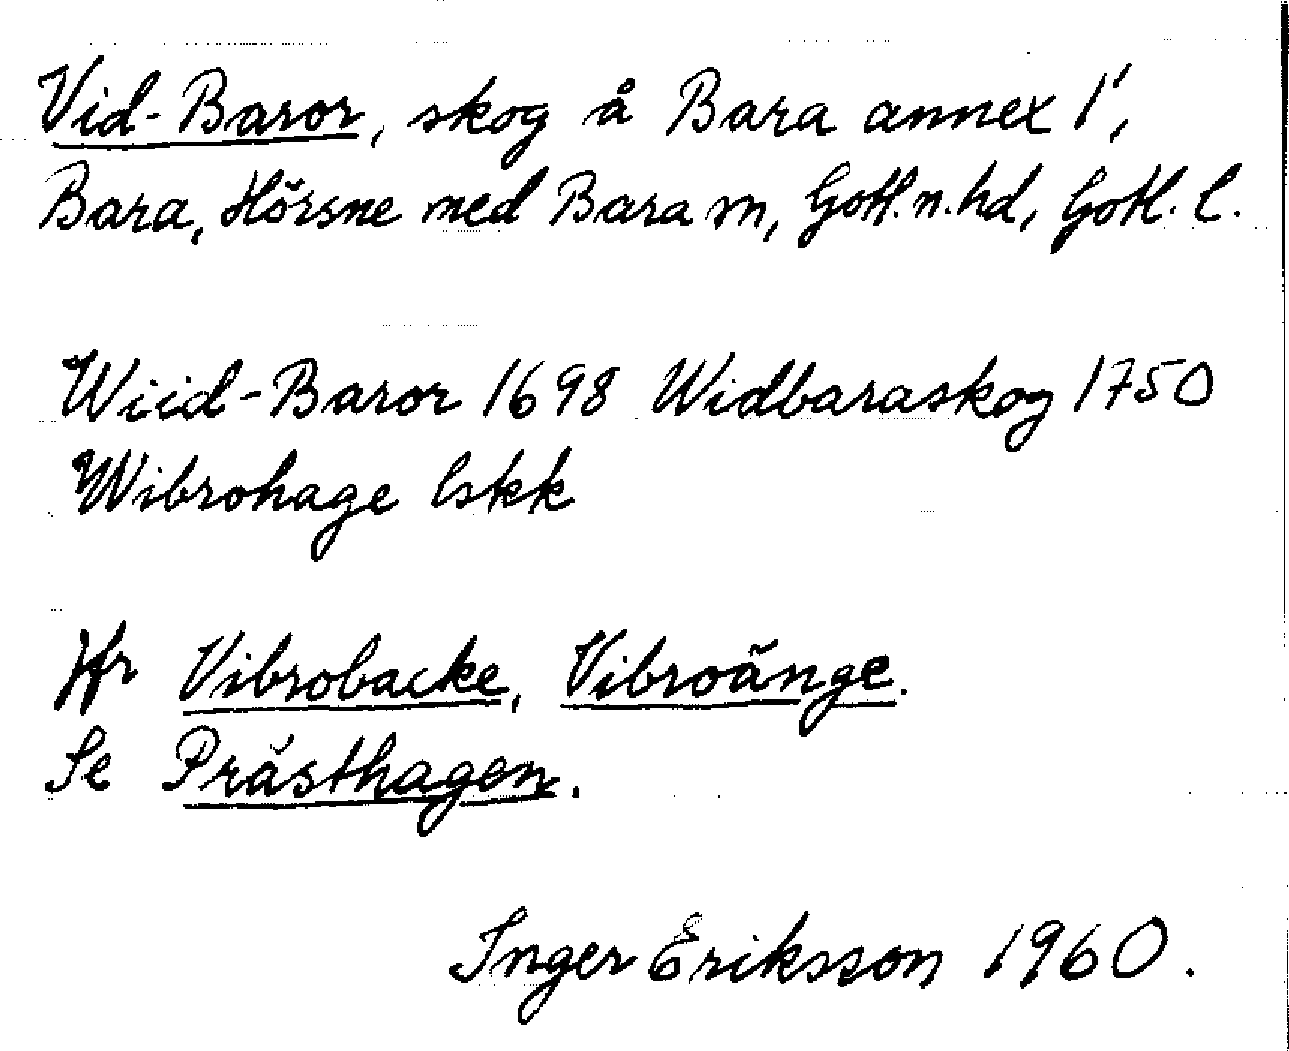 Vid-Baror, skog å Bara annex 1',
Bara, Hörsne med Bara sn, Gotl. n. hd, Gotl. l.
Wiid-Baror 1698 Widbaraskog 1750
Wibrohage lskk
Jfr Vibrobacke, Vibroänge.
Se Prästhagen.
Inger Eriksson 1960.